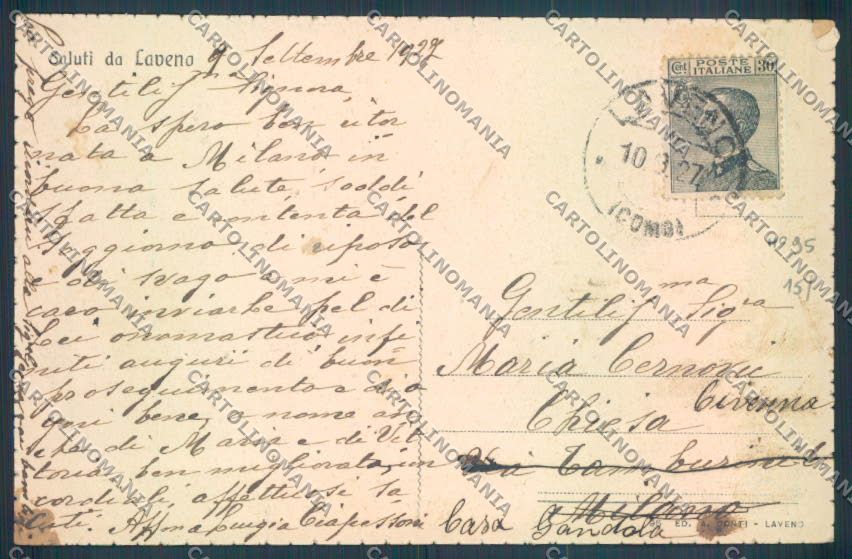 Saluti da Laveno 9 Settembre 1927
Gentil.ma Signora,
La spero ben ritor
nata a Milano in
buona salute, soddi
sfatta e contenta del
soggiorno di riposo
e di svago a me è
caro inviarle pel di
Lei onomastico infi
niti auguri di buon
proseguimento e di o
gni bene, a nome an
che di Maria e di Vit
toria ben migliorata, un
cordiali affettuosi sa
luti. Aff.ma Luigia Ciapessoni
POSTE
ITALIANE
Cent. 30
10.9.27
(COMO)
1295
15
Gentil.ma Sig.ra
Maria Cernovic
Chiesa Civenna
Via Tamburini
Milano
Casa Gandola
ED. A. CONTI - LAVENO
CARTOLINOMANIA